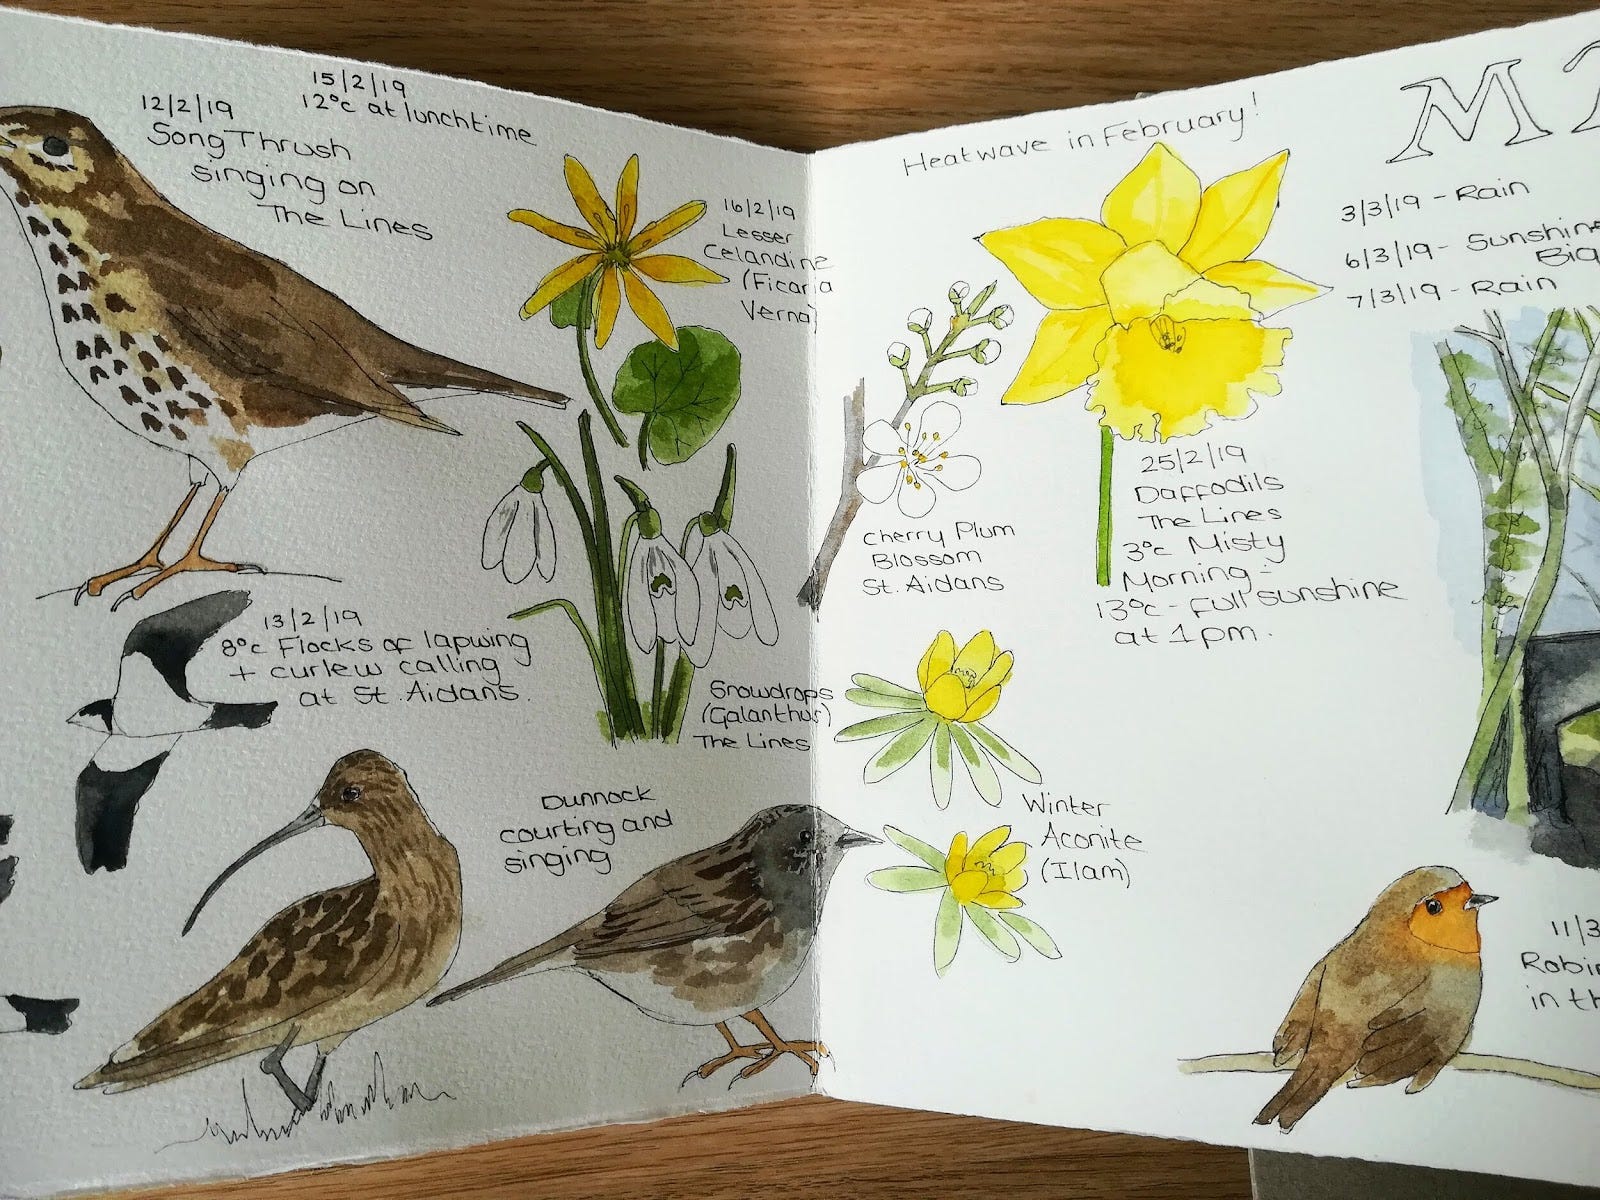 12/2/19
Song Thrush
singing on
The Lines
15/2/19
12°c at lunchtime
16/2/19
Lesser
Celandine
(Ficaria
Verna)
13/2/19
8°c Flocks of lapwing
+ curlew calling
at St. Aidans.
Snowdrops
(Galanthus)
The Lines
Dunnock
courting and
singing
Heatwave in February!
Cherry Plum
Blossom
St. Aidans
25/2/19
Daffodils
The Lines
3°c Misty
Morning -
13°c - full sunshine
at 1pm.
Winter
Aconite
(Ilam)
M
3/3/19 - Rain
6/3/19 - Sunshine
7/3/19 - Rain
11/3
in